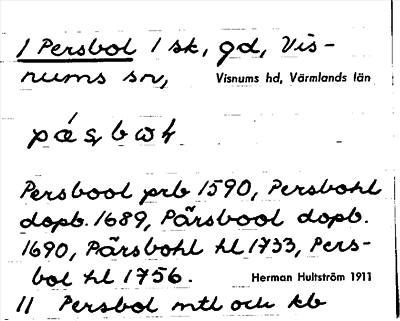 1 Persbol 1 sk, gd, Vis-
nums sn, Visnums hd, Värmlands län
Persbool prb 1590, Persbohl
dopb. 1689, Pärsbool dopb.
1690, Pärsbohl hl 1733, Pers-
bol hl 1756. Herman Hultström 1911
11 Persbol mtl och kb